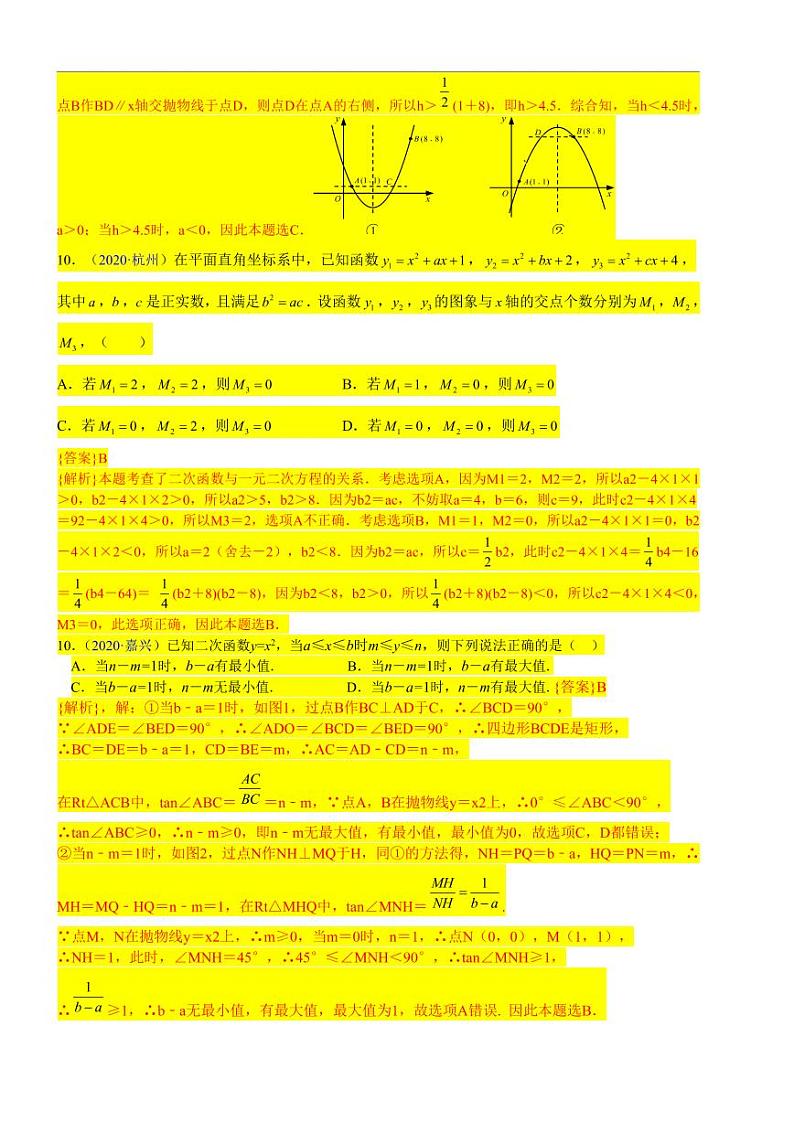 点B作BD∥x轴交抛物线于点D，则点D在点A的右侧，所以h＞1/2(1＋8)，即h＞4.5．综合知，当h＜4.5时，
y
B(8，8)
A(1，1)
C
O
x
①
y
D
B(8，8)
A(1，1)
O
x
②
a＞0；当h＞4.5时，a＜0，因此本题选C．
10．（2020·杭州）在平面直角坐标系中，已知函数y₁=x²+ax+1，y₂=x²+bx+2，y₃=x²+cx+4，
其中a，b，c是正实数，且满足b²=ac．设函数y₁，y₂，y₃的图象与x轴的交点个数分别为M₁，M₂，
M₃，（　　）
A．若M₁=2，M₂=2，则M₃=0　　B．若M₁=1，M₂=0，则M₃=0
C．若M₁=0，M₂=2，则M₃=0　　D．若M₁=0，M₂=0，则M₃=0
{答案}B
{解析}本题考查了二次函数与一元二次方程的关系．考虑选项A，因为M1＝2，M2＝2，所以a2－4×1×1
＞0，b2－4×1×2＞0，所以a2＞5，b2＞8．因为b2＝ac，不妨取a＝4，b＝6，则c＝9，此时c2－4×1×4
＝92－4×1×4＞0，所以M3＝2，选项A不正确．考虑选项B，M1＝1，M2＝0，所以a2－4×1×1＝0，b2
－4×1×2＜0，所以a＝2（舍去－2），b2＜8．因为b2＝ac，所以c＝1/2b2，此时c2－4×1×4＝1/4b4－16
＝1/4(b4－64)＝ 1/4(b2＋8)(b2－8)，因为b2＜8，b2＞0，所以1/4(b2＋8)(b2－8)＜0，所以c2－4×1×4＜0，
M3＝0，此选项正确，因此本题选B．
10.（2020·嘉兴）已知二次函数y=x²，当a≤x≤b时m≤y≤n，则下列说法正确的是（　）
A．当n－m=1时，b－a有最小值．　　B．当n－m=1时，b－a有最大值．
C．当b－a=1时，n－m无最小值．　　D．当b－a=1时，n－m有最大值．{答案}B
{解析}，解：①当b﹣a＝1时，如图1，过点B作BC⊥AD于C，∴∠BCD＝90°，
∵∠ADE＝∠BED＝90°，∴∠ADO＝∠BCD＝∠BED＝90°，∴四边形BCDE是矩形，
∴BC＝DE＝b﹣a＝1，CD＝BE＝m，∴AC＝AD﹣CD＝n﹣m，
在Rt△ACB中，tan∠ABC＝AC/BC＝n﹣m，∵点A，B在抛物线y＝x2上，∴0°≤∠ABC＜90°，
∴tan∠ABC≥0，∴n﹣m≥0，即n﹣m无最大值，有最小值，最小值为0，故选项C，D都错误；
②当n﹣m＝1时，如图2，过点N作NH⊥MQ于H，同①的方法得，NH＝PQ＝b﹣a，HQ＝PN＝m，∴
MH＝MQ﹣HQ＝n﹣m＝1，在Rt△MHQ中，tan∠MNH＝MH/NH=1/(b﹣a)．
∵点M，N在抛物线y＝x2上，∴m≥0，当m＝0时，n＝1，∴点N（0，0），M（1，1），
∴NH＝1，此时，∠MNH＝45°，∴45°≤∠MNH＜90°，∴tan∠MNH≥1，
∴1/(b﹣a)≥1，∴b﹣a无最小值，有最大值，最大值为1，故选项A错误．因此本题选B．